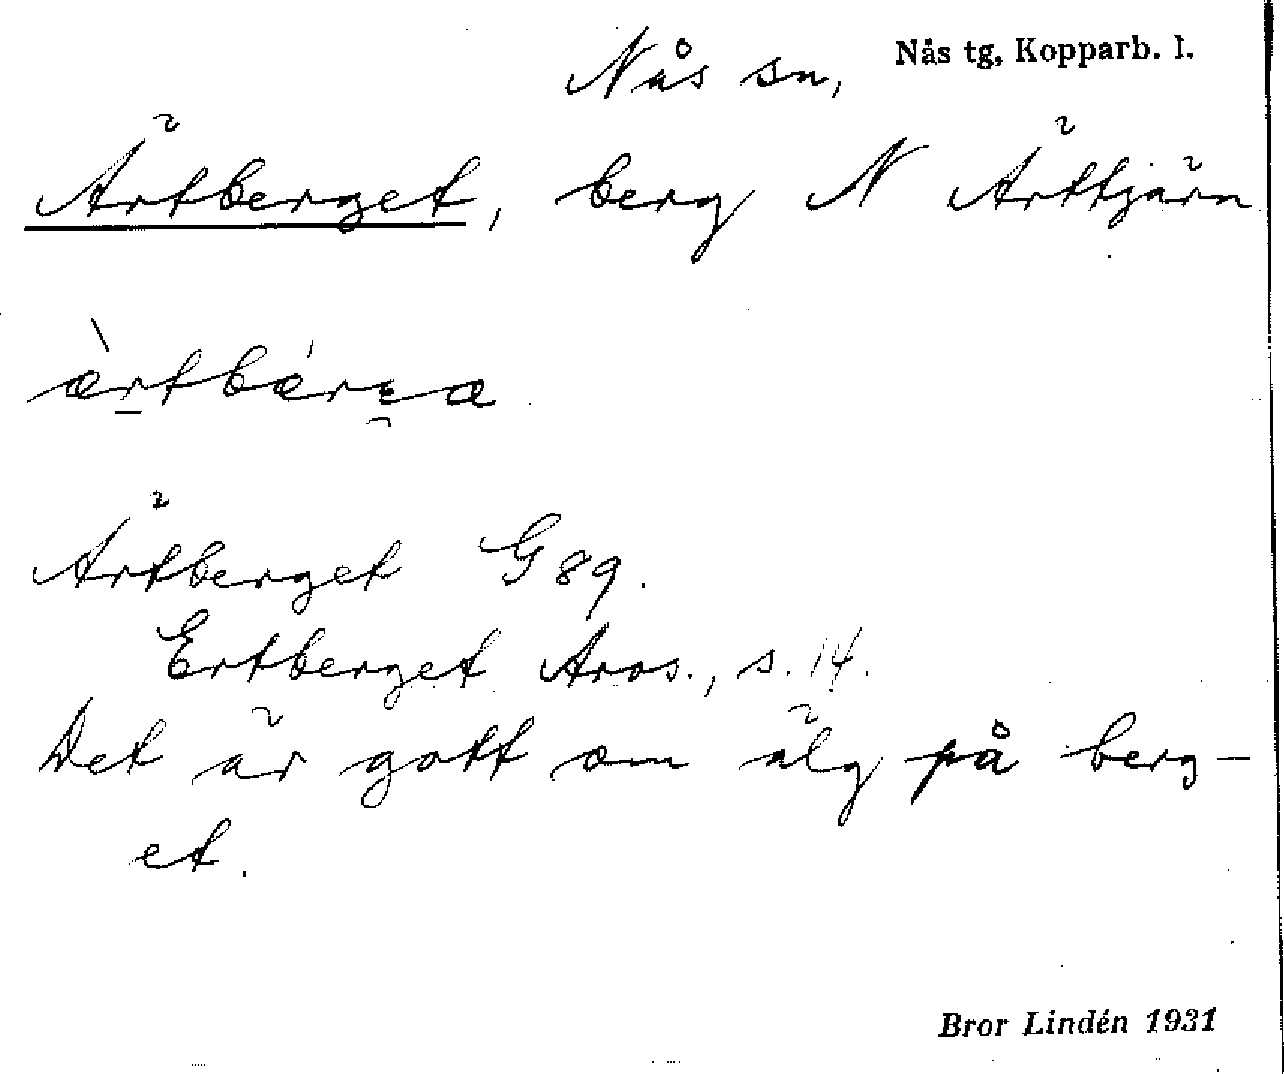 Nås sn, Nås tg, Kopparb. l.
Ärtberget, berg N Ärttjärn
Ärtberget G 89.
Ertberget Aros., s. 14.
Det är gott om älg på berg-
et.
Bror Lindén 1931